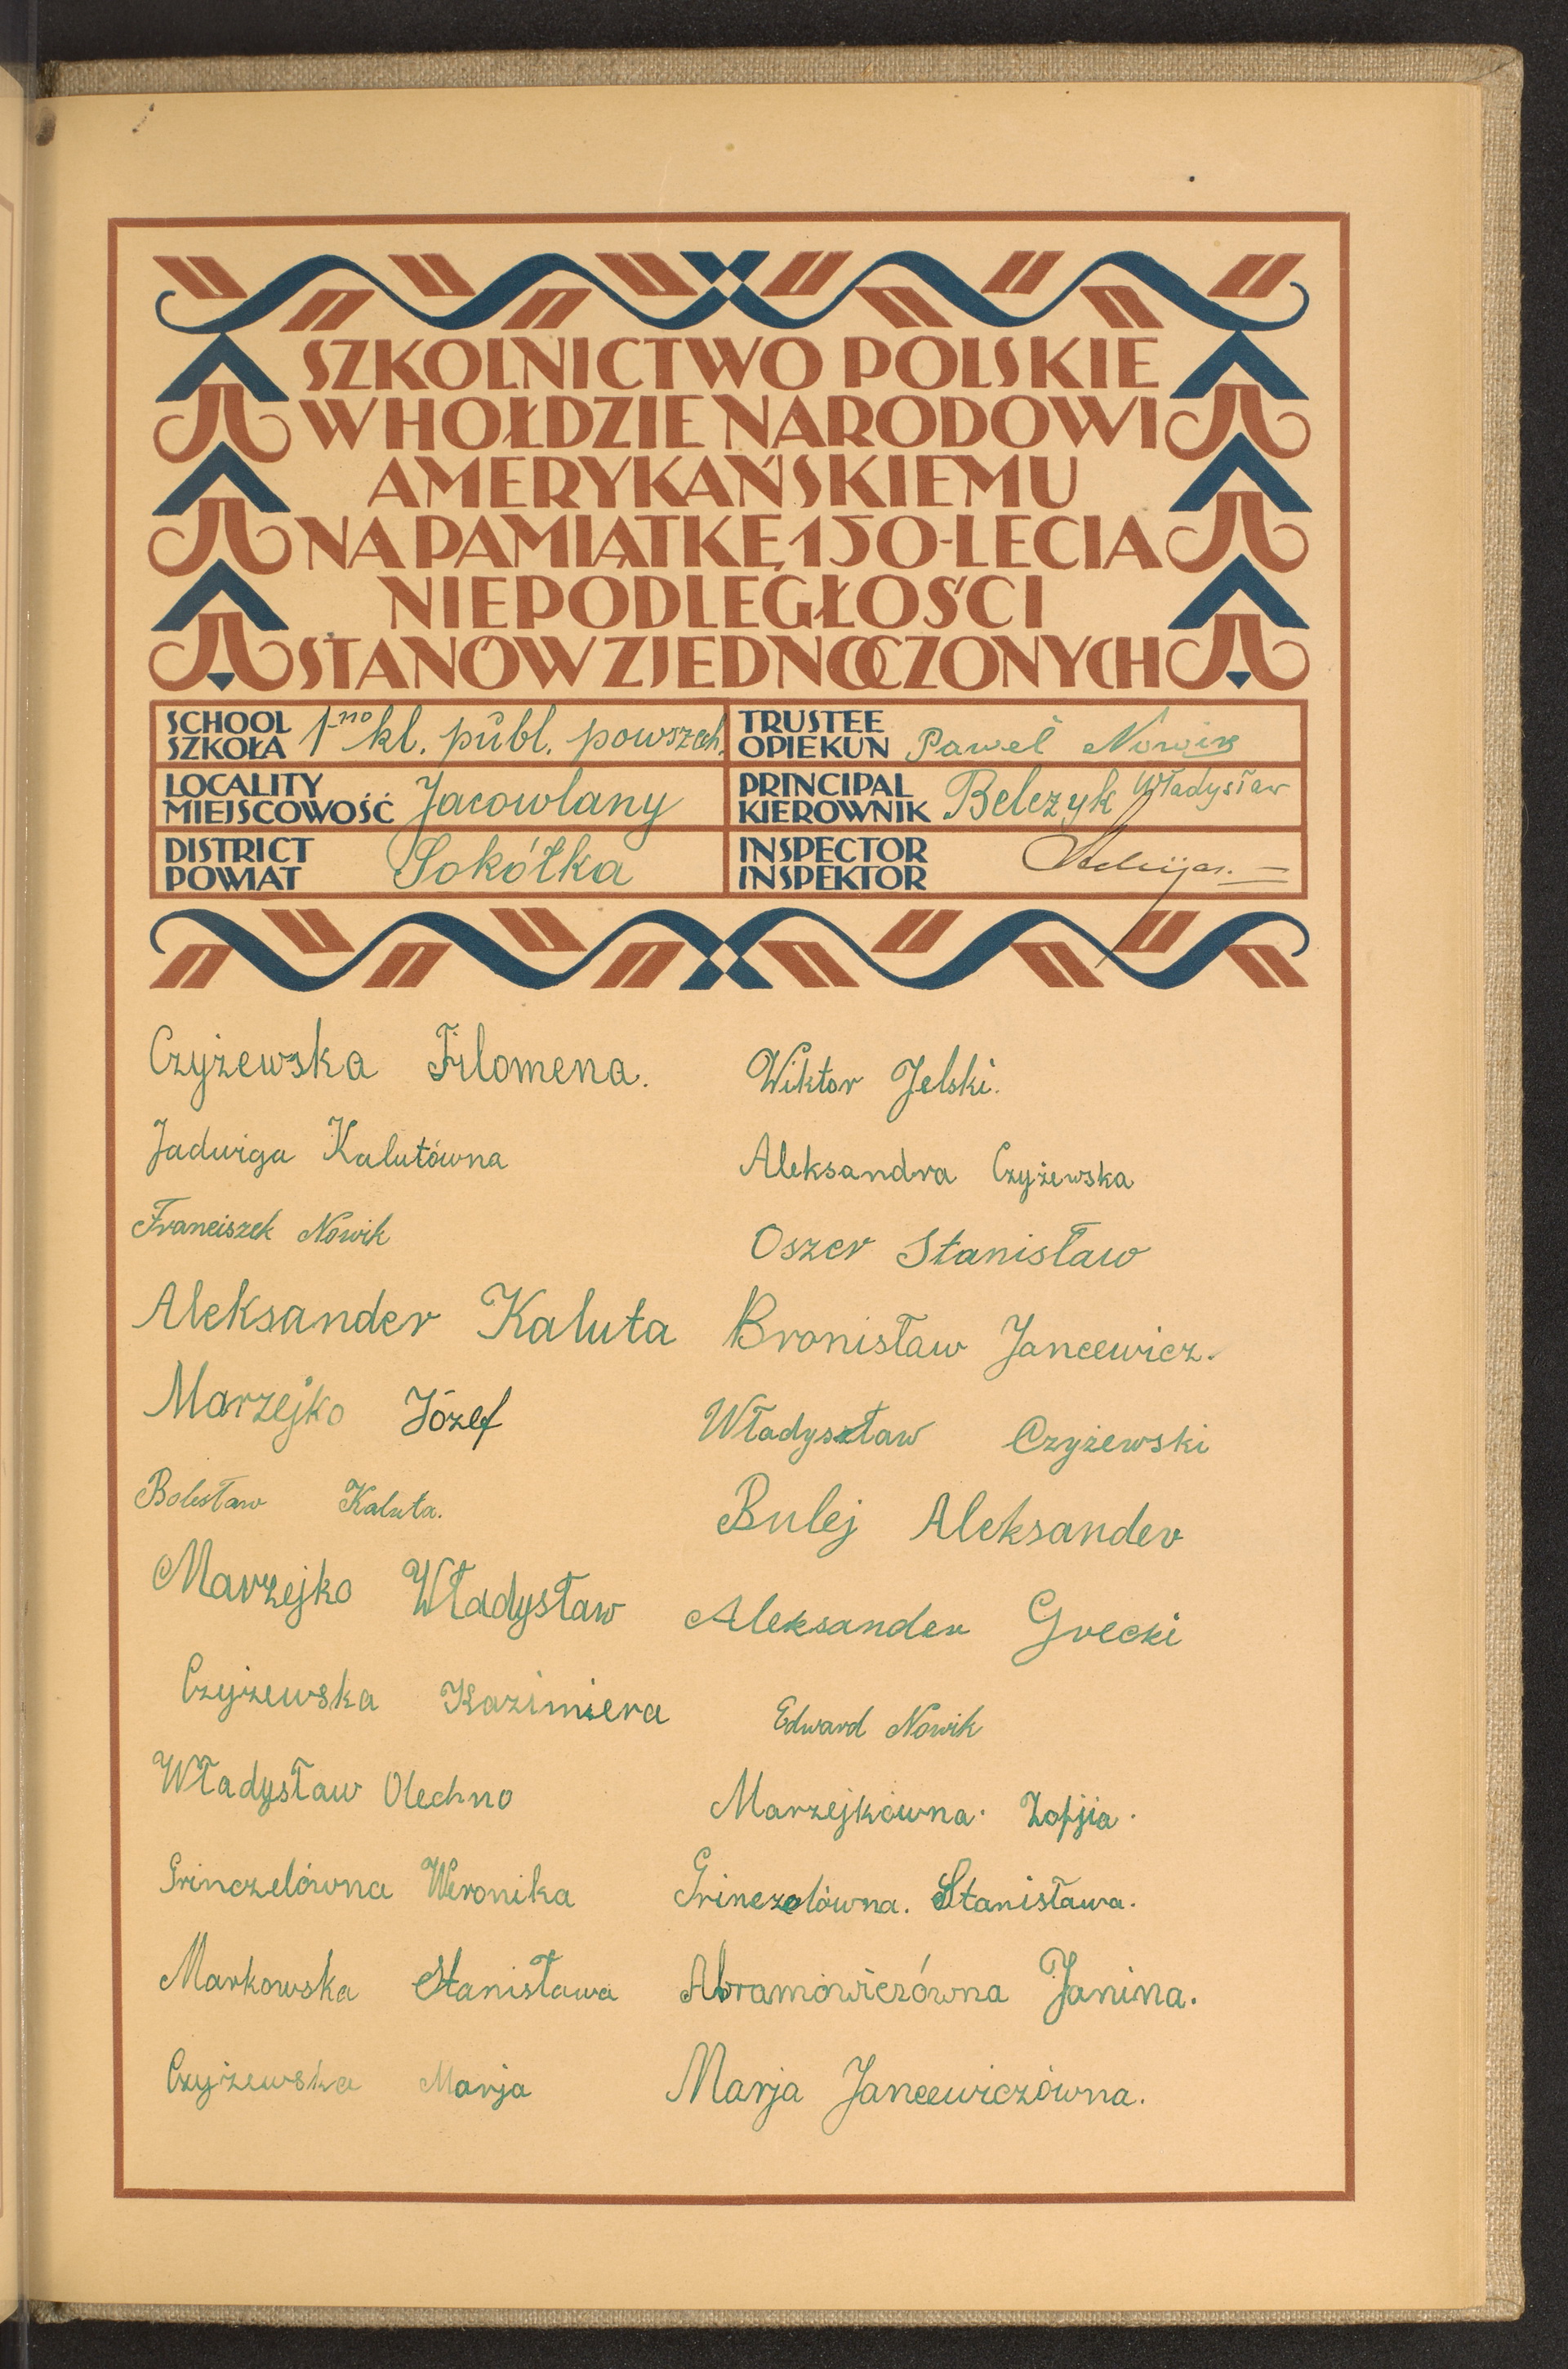 SZKOLNICTWO POLSKIE
W HOŁDZIE NARODOWI
AMERYKAŃSKIEMU
NA PAMIĄTKĘ 150-LECIA
NIEPODLEGŁOŚCI
STANÓW ZJEDNOCZONYCH
SCHOOL
SZKOŁA 1-no kl. publ. powszech.
TRUSTEE
OPIEKUN Paweł Nowik
LOCALITY
MIEJSCOWOŚĆ Jacowlany
PRINCIPAL
KIEROWNIK Belczyk Władysław
DISTRICT
POWIAT Sokółka
INSPECTOR
INSPEKTOR
Czyżewska Filomena.
Jadwiga Kalutówna
Franciszek Nowik
Aleksander Kaluta
Marzejko Józef
Bolesław Kaluta.
Marzejko Władysław
Czyżewska Kazimiera
Władysław Olechno
Grinczelówna Weronika
Markowska Stanisława
Czyżewska Marja
Wiktor Jelski.
Aleksandra Czyżewska
Oszer Stanisław
Bronisław Jancewicz.
Władysław Czyżewski
Bulej Aleksander
Aleksander Grecki
Edward Nowik
Marzejkówna. Zofjia.
Grinczelówna. Stanisława.
Abramowiczówna Janina.
Marja Jancewiczówna.